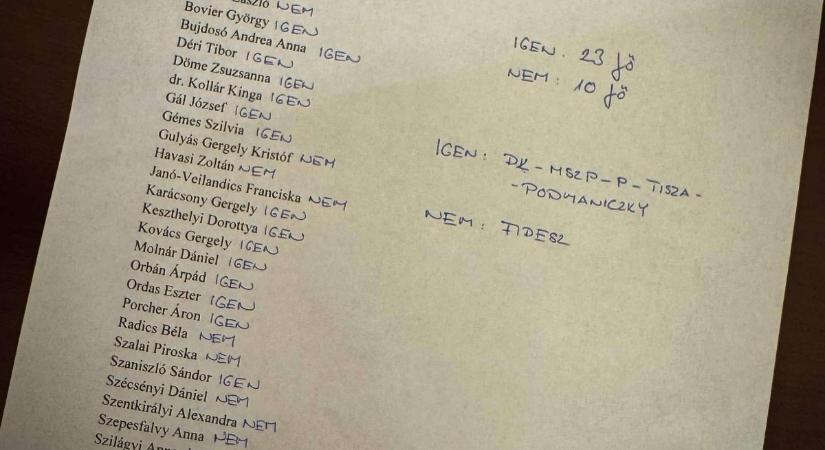 NEM
Bovier György IGEN
Bujdosó Andrea Anna IGEN
Déri Tibor IGEN
Döme Zsuzsanna IGEN
dr. Kollár Kinga IGEN
Gál József IGEN
Gémes Szilvia IGEN
Gulyás Gergely Kristóf NEM
Havasi Zoltán NEM
Janó-Veilandics Franciska NEM
Karácsony Gergely IGEN
Keszthelyi Dorottya IGEN
Kovács Gergely IGEN
Molnár Dániel IGEN
Orbán Árpád IGEN
Ordas Eszter IGEN
Porcher Áron IGEN
Radics Béla NEM
Szalai Piroska NEM
Szaniszló Sándor IGEN
Szécsényi Dániel NEM
Szentkirályi Alexandra NEM
Szepesfalvy Anna NEM
Szilágyi
IGEN. 23 fő
NEM: 10 fő
IGEN: DK-MSZP-P-TISZA-
-PODMANICZKY
NEM: FIDESZ